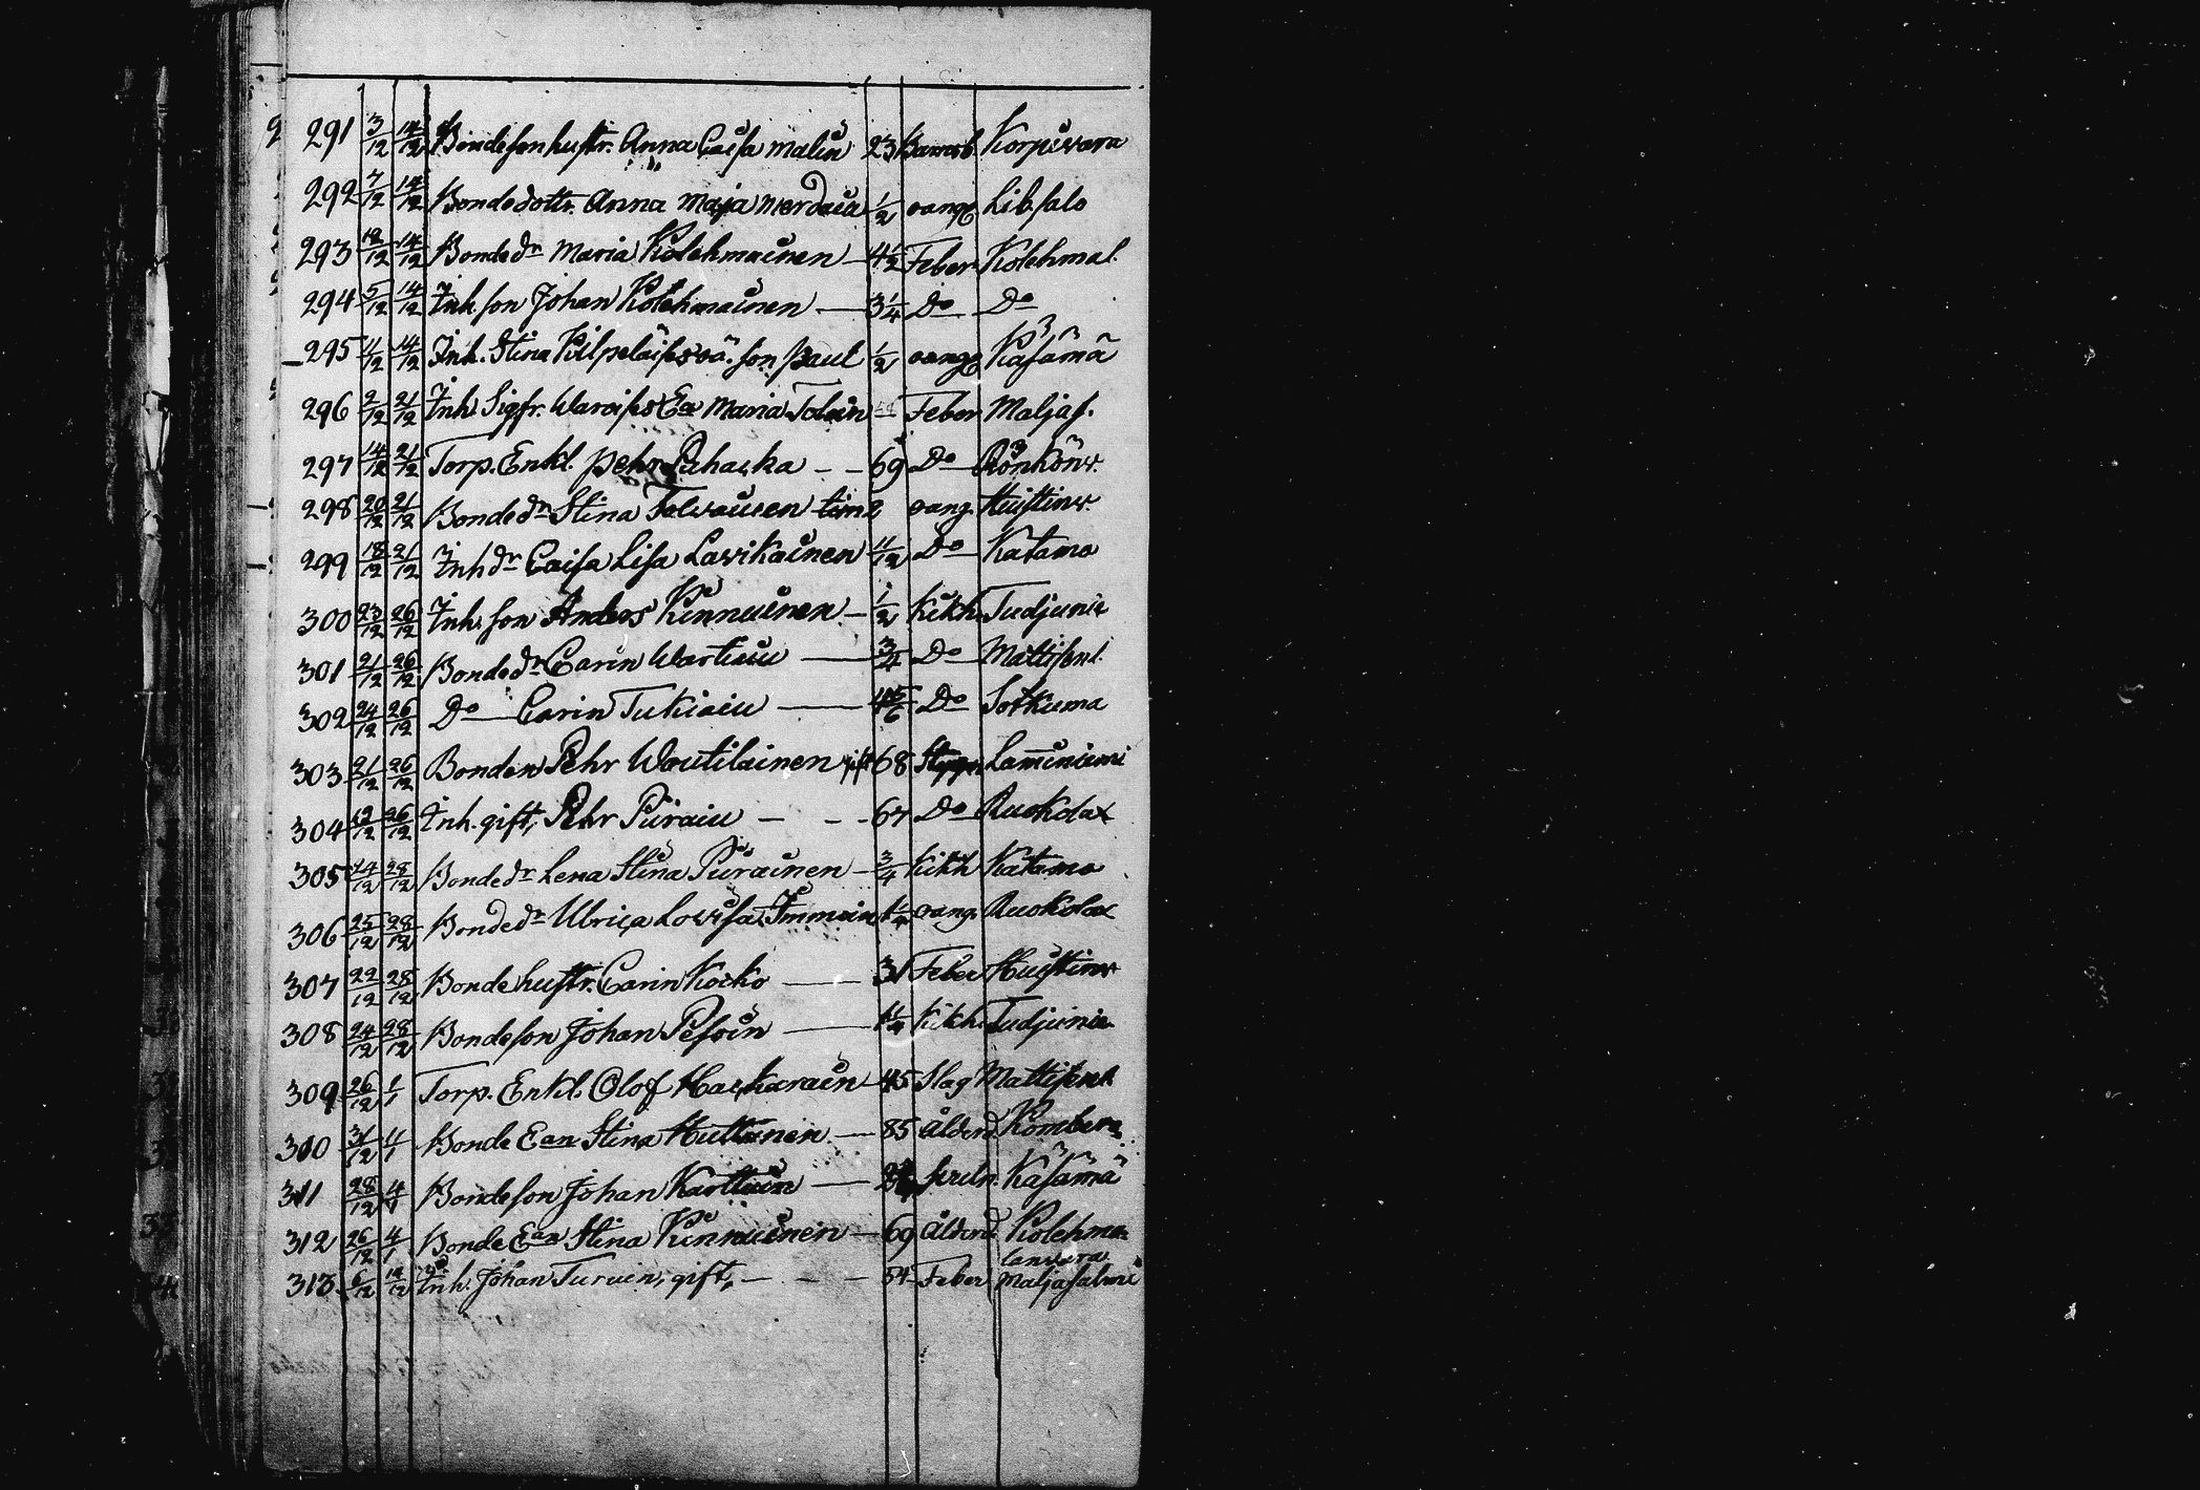 291 3/12 14/12 Bondesonhustr. Anna Caisa Malin 23 Barnsb. Korpivara
292 7/12 14/12 Bondedottr. Anna Maja Merdain 1/2 oang. Libsalo
293 12/12 14/12 Bondedr Maria Kolehmainen — 4 1/2 Feber Kolehmal.
294 5/12 14/12 Inh. son Johan Kolehmainen — 3 1/4 Do Do
295 11/12 14/12 Inh. Stina Kilpeläis oä. son Paul 1/2 oang. Käsämä
296 2/12 21/12 Inh. Sigfr. Waroiss Ea Maria Toluin Feber Maljas.
297 14/12 21/12 Torp. Enkl. Pehr Puhacka - - 69 Do Rönkönv.
298 20/12 21/12 Bondedr Stina Tolvanen tim 2 oang. Huistinv.
299 18/12 21/12 Inhdr Caisa Lisa Lavikainen 11/12 Do Katamo
300 23/12 26/12 Inh. son Anders Kinnuinen — 1/2 Kikh. Tudjunie
301 21/12 26/12 Bondedr Carin Wartiain — 3/4 Do Mattisenl.
302 24/12 26/12 Do Carin Tukiain — 4 5/6 Do Sotkuma
303 21/12 26/12 Bonden Pehr Woutilainen gift 68 Laminiemi
304 19/12 26/12 Inh. gift, Pehr Pürain - - - 67 Do Ruokolax
305 24/12 28/12 Bondedr Lena Stina Pürainen — 3/4 Kikh Katamo
306 25/12 28/12 Bondedr Ulrica Lovisa Immoin oang. Ruokolax
307 22/12 28/12 Bondehustr. Carin Kocko — 31 Feber Huistinv
308 24/12 28/12 Bondeson Johan Pesoin — 1 1/2 Kikh. Tudjunie
309 26/12 1/1 Torp. Enkl. Olof Hackarain 45 Slag Mattisenl.
310 31/12 4/1 Bonde Ean Stina Huttunen — 85 Ålderd. Kombera
311 28/12 4/1 Bondeson Johan Karttuin — Käsämä
312 26/12 4/1 Bonde Ean Stina Kinnuinen — 69 Ålderd Kolehma-
lanvara
313 6/12 14/12 Inh. Johan Turuin, gift, - - - 54 Feber Maljasalmi